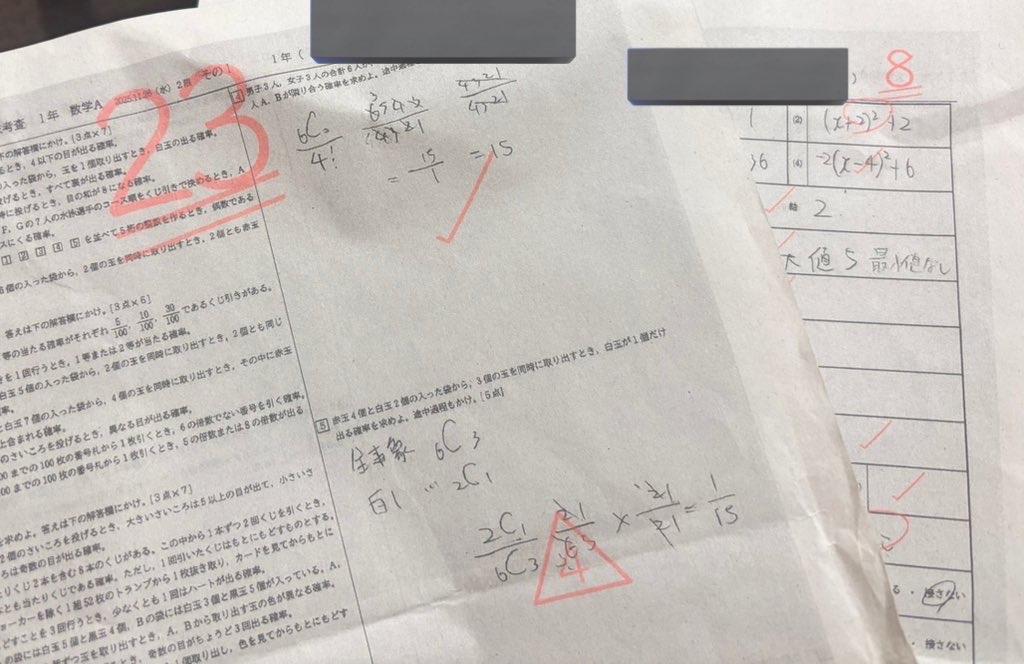 考査 1年 数学A 2025.11.26(水)2限 その1
1年(
23
下の解答欄にかけ。[3点×7]
るとき,4以下の目が出る確率。
の入った袋から,玉を1個取り出すとき,白玉の出る確率。
投げるとき,すべて裏が出る確率。
に投げるとき,目の和が8になる確率。
F,Gの7人の水泳選手のコース順をくじ引きで決めるとき,A
スにくる確率。
1 2 3 4 5 を並べて5桁の整数を作るとき,偶数である
6個の入った袋から,2個の玉を同時に取り出すとき,2個とも赤玉
答えは下の解答欄にかけ。[3点×6]
等の当たる確率がそれぞれ 5/100, 10/100, 30/100 であるくじ引きがある。
きを1回行うとき,1等または2等が当たる確率。
白玉5個の入った袋から,2個の玉を同時に取り出すとき,2個とも同じ
率。
と白玉7個の入った袋から,4個の玉を同時に取り出すとき,その中に赤玉
上含まれる確率。
のさいころを投げるとき,異なる目が出る確率。
00までの100枚の番号札から1枚引くとき,6の倍数でない番号を引く確率。
00までの100枚の番号札から1枚引くとき,5の倍数または8の倍数が出る
を求めよ。答えは下の解答欄にかけ。[3点×7]
2個のさいころを投げるとき,大きいさいころは5以上の目が出て,小さいさ
ろは奇数の目が出る確率。
たりくじ2本を含む8本のくじがある。この中から1本ずつ2回くじを引くとき,
とも当たりくじである確率。ただし,1回引いたくじはもとにもどすものとする。
ョーカーを除く1組52枚のトランプから1枚抜き取り,カードを見てからもとに
どすことを3回行うとき,少なくとも1回はハートが出る確率。
の袋には白玉5個と黒玉4個,Bの袋には白玉3個と黒玉5個が入っている。A,
ら1個ずつ玉を取り出すとき,A,Bから取り出す玉の色が異なる確率。
とき,奇数の目がちょうど3回出る確率。
1個取り出し,色を見てからもとにもどす
4 男子3人,女子3人の合計6人が
人A,Bが隣り合う確率を求めよ。途中過程も
4!
= 15/1 = 15
5 赤玉4個と白玉2個の入った袋から,3個の玉を同時に取り出すとき,白玉が1個だけ
出る確率を求めよ。途中過程もかけ。[5点]
全事象 6C3
白1 … 2C1
2C1/6C3
= 1/15
4
8
(2) (x+2)²+2
36 (4) -2(x-4)²+6
軸 2
大値 5 最小値なし
る ・ 接さない
・ 接さない